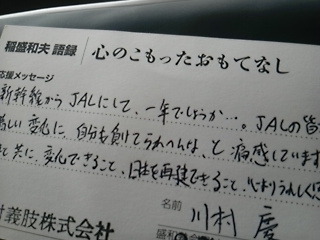 稲盛和夫 語録 心のこもったおもてなし
応援メッセージ
新幹線からJALにして、一年でしょうか…。JALの皆
しい変化に、自分も負けてられへんな、と痛感しています
共に、変んできること、日本を再建できること、心よりうれしく
義肢株式会社
名前
川村 慶
盛和